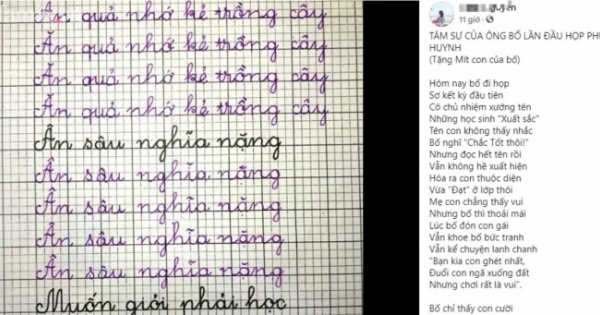 Ăn quả nhớ kẻ trồng cây
Ăn quả nhớ kẻ trồng cây
Ăn quả nhớ kẻ trồng cây
Ăn quả nhớ kẻ trồng cây
Ăn quả nhớ kẻ trồng cây
Ân sâu nghĩa nặng
Ân sâu nghĩa nặng
Ân sâu nghĩa nặng
Ân sâu nghĩa nặng
Ân sâu nghĩa nặng
Muốn giỏi phải học
11 giờ
TÂM SỰ CỦA ÔNG BỐ LẦN ĐẦU HỌP PHỤ
HUYNH
(Tặng Mít con của bố)
Hôm nay bố đi họp
Sơ kết kỳ đầu tiên
Cô chủ nhiệm xướng tên
Những học sinh "Xuất sắc"
Tên con không thấy nhắc
Bố nghĩ "Chắc Tốt thôi!"
Nhưng đọc hết tên rồi
Vẫn không hề xuất hiện
Hóa ra con thuộc diện
Vừa "Đạt" ở lớp thôi
Mẹ con chẳng thấy vui
Nhưng bố thì thoải mái
Lúc bố đón con gái
Vẫn khoe bố bức tranh
Vẫn kể chuyện lanh chanh
"Bạn kia con ghét nhất,
Đuổi con ngã xuống đất
Nhưng chơi rất là vui".
Bố chỉ thấy con cười